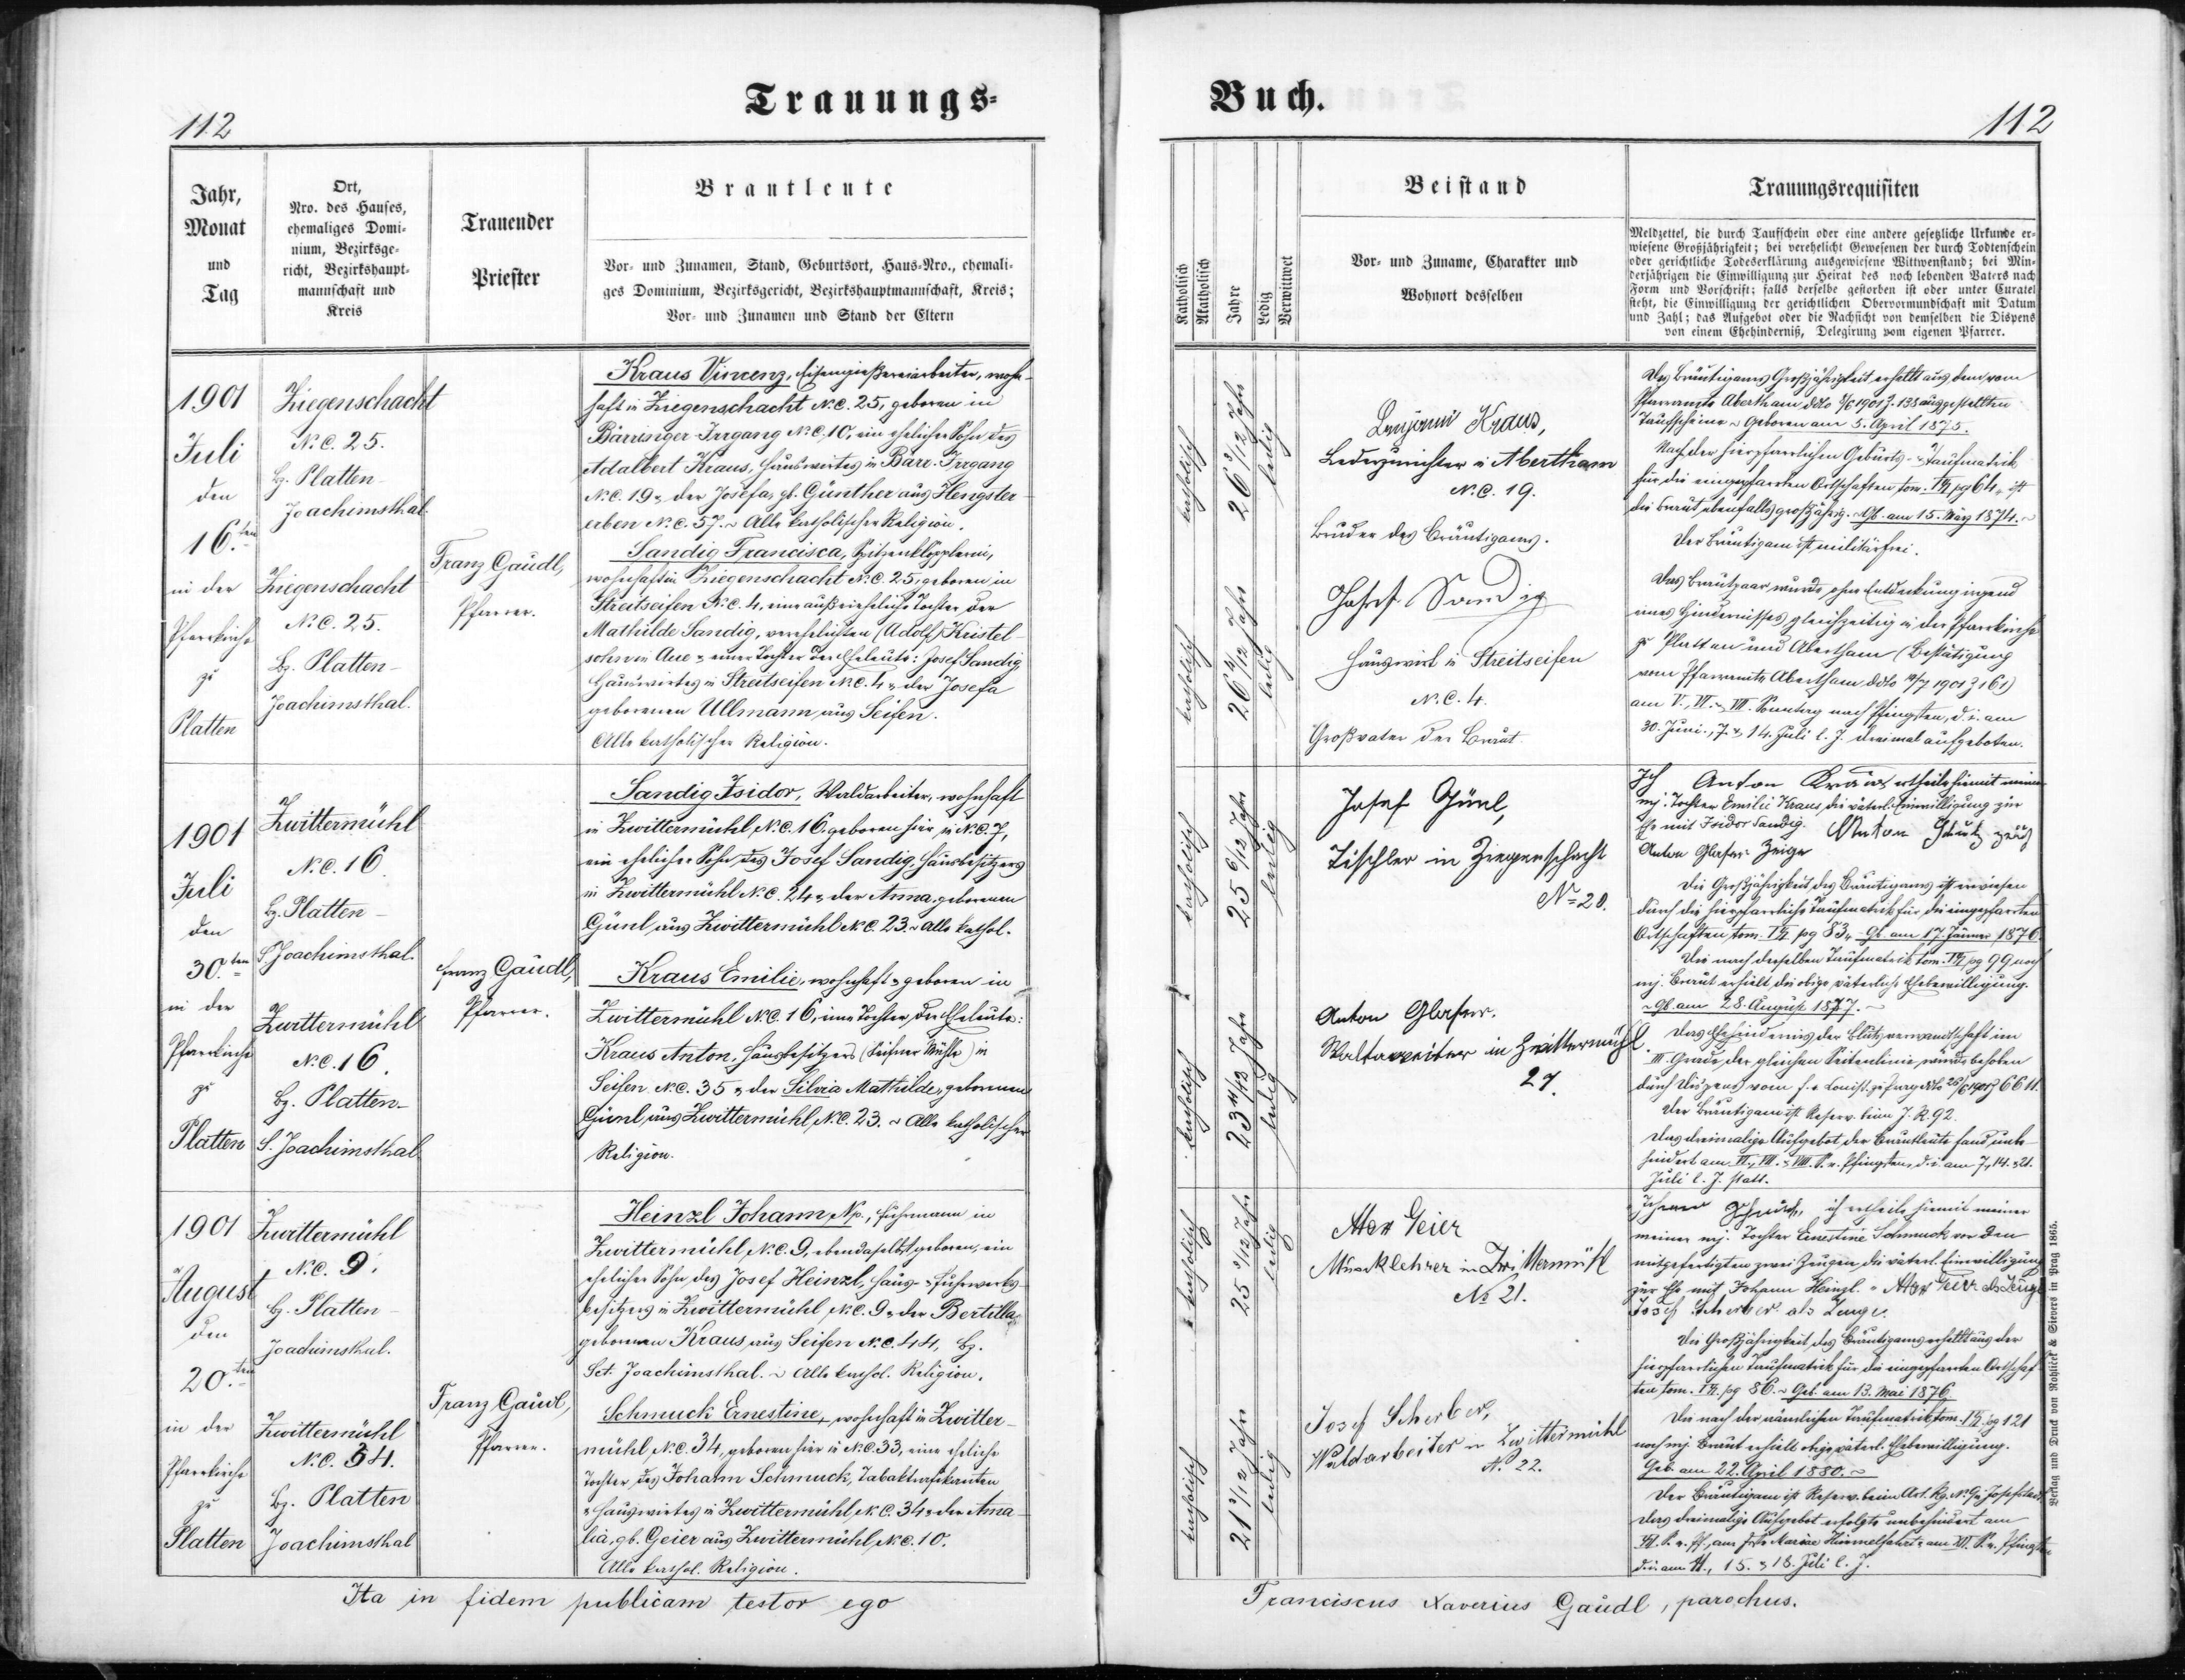 112
Trauungs-
Jahr,
Monat
und
Tag
Ort,
Nro. des Hauses,
ehemaliges Domi-
nium, Bezirksge-
richt, Bezirkshaupt-
mannschaft und
Kreis
Trauender
Priester
Brautleute
Vor- und Zunamen, Stand, Geburtsort, Haus-Nro., ehemali-
ges Dominium, Bezirksgericht, Bezirkshauptmannschaft, Kreis;
Vor- und Zunamen und Stand der Eltern
1901
Juli
den
16.ten
in der
Pfarrkirche
zu
Platten
Ziegenschacht
N.C. 25.
Bz. Platten-
Joachimsthal.
Ziegenschacht
N.C. 25.
Bz. Platten-
Joachimsthal.
Franz Gaudl,
Pfarrer.
Kraus Vincenz, Eisengießereiarbeiter, wohn-
haft in Ziegenschacht N.C. 25, geboren in
Bärringer-Irrgang N.C. 10, ein ehelicher Sohn des
Adalbert Kraus, Hauswirtes in Bärr. Irrgang
N.C. 19 u. der Josefa, gb. Günther aus Hengster-
erben N.C. 57. ~ Alle katholischer Religion.
Sandig Francisca, Spitzenklöpplerin,
wohnhaft in Ziegenschacht N.C. 25, geboren in
Streitseifen N.C. 4, eine außereheliche Tochter der
Mathilde Sandig, verehelichten (Adolf) Kristel-
sohn in Aue u. einer Tochter der Eheleute: Josef Sandig
Hauswirtes in Streitseifen N.C. 4 u. der Josefa
geborenen Ullmann aus Seifen.
Alle katholischer Religion.
1901
Juli
den
30.ten
in der
Pfarrkirche
zu
Platten
Zwittermühl
N.C. 16.
Bz. Platten-
S. Joachimsthal.
Zwittermühl
N.C. 16.
Bz. Platten-
S. Joachimsthal
Franz Gaudl,
Pfarrer.
Sandig Isidor, Waldarbeiter, wohnhaft
in Zwittermühl N.C. 16, geboren hier in N.C. 7,
ein ehelicher Sohn des Josef Sandig, Hausbesitzers
in Zwittermühl N.C. 24 u. der Anna, geborenen
Günl aus Zwittermühl N.C. 23. ~ Alle kathol.
Kraus Emilie, wohnhaft u. geboren in
Zwittermühl N.C. 16, eine Tochter der Eheleute:
Kraus Anton, Hausbesitzers (Seifner Mühle) in
Seifen N.C. 35 u. der Silvia Mathilde, geborenen
Günl aus Zwittermühl N.C. 23. ~ Alle katholischer
Religion.
1901
August
den
20.ten
in der
Pfarrkirche
zu
Platten
Zwittermühl
N.C. 9.
Bz. Platten-
Joachimsthal.
Zwittermühl
N.C. 34.
Bz. Platten
Joachimsthal
Franz Gaudl,
Pfarrer.
Heinzl Johann Np., Fuhrmann in
Zwittermühl N.C. 9, ebendaselbst geboren, ein
ehelicher Sohn des Josef Heinzl, Haus- u. Fuhrwerks-
besitzers in Zwittermühl N.C. 9 u. der Bertilla,
geborenen Kraus aus Seifen N.C. 44, Bz.
Sct. Joachimsthal. ~ Alle kathol. Religion.
Schmuck Ernestine, wohnhaft in Zwitter-
mühl N.C. 34, geboren hier in N.C. 33, eine eheliche
Tochter des Johann Schmuck, Tabaktrafikanten
u. Hauswirtes in Zwittermühl N.C. 34 u. der Ama-
lia, gb. Geier aus Zwittermühl N.C. 10.
Alle kathol. Religion.
Ita in fidem publicam testor ego
Buch.
112
Katholisch
Akatholisch
Jahre
Ledig
Verwittwet
Beistand
Vor- und Zuname, Charakter und
Wohnort desselben
Trauungsrequisiten
Meldzettel, die durch Taufschein oder eine andere gesetzliche Urkunde er-
wiesene Großjährigkeit; bei verehelicht Gewesenen der durch Todtenschein
oder gerichtliche Todeserklärung ausgewiesene Wittwenstand; bei Min-
derjährigen die Einwilligung zur Heirat des noch lebenden Vaters nach
Form und Vorschrift; falls derselbe gestorben ist oder unter Curatel
steht, die Einwilligung der gerichtlichen Obervormundschaft mit Datum
und Zahl; das Aufgebot oder die Nachsicht von demselben die Dispens
von einem Ehehinderniß, Delegirung vom eigenen Pfarrer.
katholisch
26 3/12 Jahre
ledig
Benjamin Kraus,
Lederzurichter in Abertham
N.C. 19.
Bruder des Bräutigams.
katholisch
ledig
Josef Sandig
Hauswirt in Streitseifen
N.C. 4.
Großvater der Braut.
Des Bräutigams Großjährigkeit erhellt aus dem vom
Pfarramte Abertham ddto 1901 Z. 138 ausgestellten
Taufscheine ~ Geboren am 5. April 1875.
Nach der hierpfarrlichen Geburts- u. Taufmatrik
für die eingepfarrten Ortschaften tom. pg 64, ist
die Braut ebenfalls großjährig. ~ Gb. am 15. März 1874. ~
Der Bräutigam ist militärfrei.
Das Brautpaar wurde ohne Entdeckung irgend
eines Hindernisses gleichzeitig in der Pfarrkirche
zu Platten und Abertham (Bestätigung
vom Pfarramte Abertham ddto 1901 Z 161)
am V., VI. u. VII. Sonntag nach Pfingsten, d. i. am
30. Juni, 7. u. 14. Juli l. J. dreimal aufgeboten.
katholisch
25 6/12 Jahre
ledig
Josef Günl,
Tischler in Ziegenschacht
No 20.
katholisch
23 11/12 Jahre
ledig
Anton Glaser.
Waltarveiter in Zwittermühl
27.
Ich Anton Kraus ertheile hiemit meiner
mj. Tochter Emilie Kraus, die väterl. Einwilligung zur
Ehe mit Isidor Sandig.
Anton Glaser Zeige
Die Großjährigkeit des Bräutigams ist erwiesen
durch die hierpfarrliche Taufmatrik für die eingepfarrten
Ortschaften, tom. pg 83, Gb. am 17. Jänner 1876.
Die nach derselben Taufmatrik tom. pg 99 noch
mj. Braut erhielt die obige väterliche Ehebewilligung.
~ Gb. am 28. August 1877. ~
Das Ehehindernis der Blutsverwandtschaft im
III. Grade der gleichen Seitenlinie wurde behoben
durch Dispens vom f. e. Consist. zu Prag ddto 1901 Z 6611.
Der Bräutigam ist Reserv. beim J. R. 92.
Das dreimalige Aufgebot der Brautleute fand unbe-
hindert am VI., VII. u. VIII. S. n. Pfingsten, d. i. am 7., 14. u. 21.
Juli l. J. statt.
katholisch
25 3/12 Jahre
ledig
Geier
Musiklehrer in Zwittermühl
No 21.
katholisch
21 Jahre
ledig
Josef Scherber,
Waldarbeiter in Zwittermühl
N. 22.
ich ertheile hiemit meiner
meiner mj. Tochter Ernestine Schmuck vor den
mitgefertigten zwei Zeugen die väterl. Einwilligung
zur Ehe mit Johann Heinzl. Geier als Zeuge
Josef Scherber als Zeuge.
Die Großjährigkeit des Bräutigams erhellt aus der
hierpfarrlichen Taufmatrik für die eingepfarrten Ortschaf-
ten, tom. pg 86. ~ Geb. am 13. Mai 1876
Die nach der nämlichen Taufmatrik tom. pg 121
noch mj. Braut erhielt obige väterl. Ehebewilligung.
Geb. am 22. April 1880. ~
Der Bräutigam ist Reserv. beim Art. Rg. N. 9 in Josefstadt.
Das dreimalige Aufgebot erfolgte unbehindert am
am Feste Mariae Himmelfahrt u. am XII. S. n. Pfingsten
d. i. am 11., 15. u. 18. Juli l. J.
Franciscus Xaverius Gaudl, parochus.
Verlag und Druck von Rohlicek & Sievers in Prag 1865.